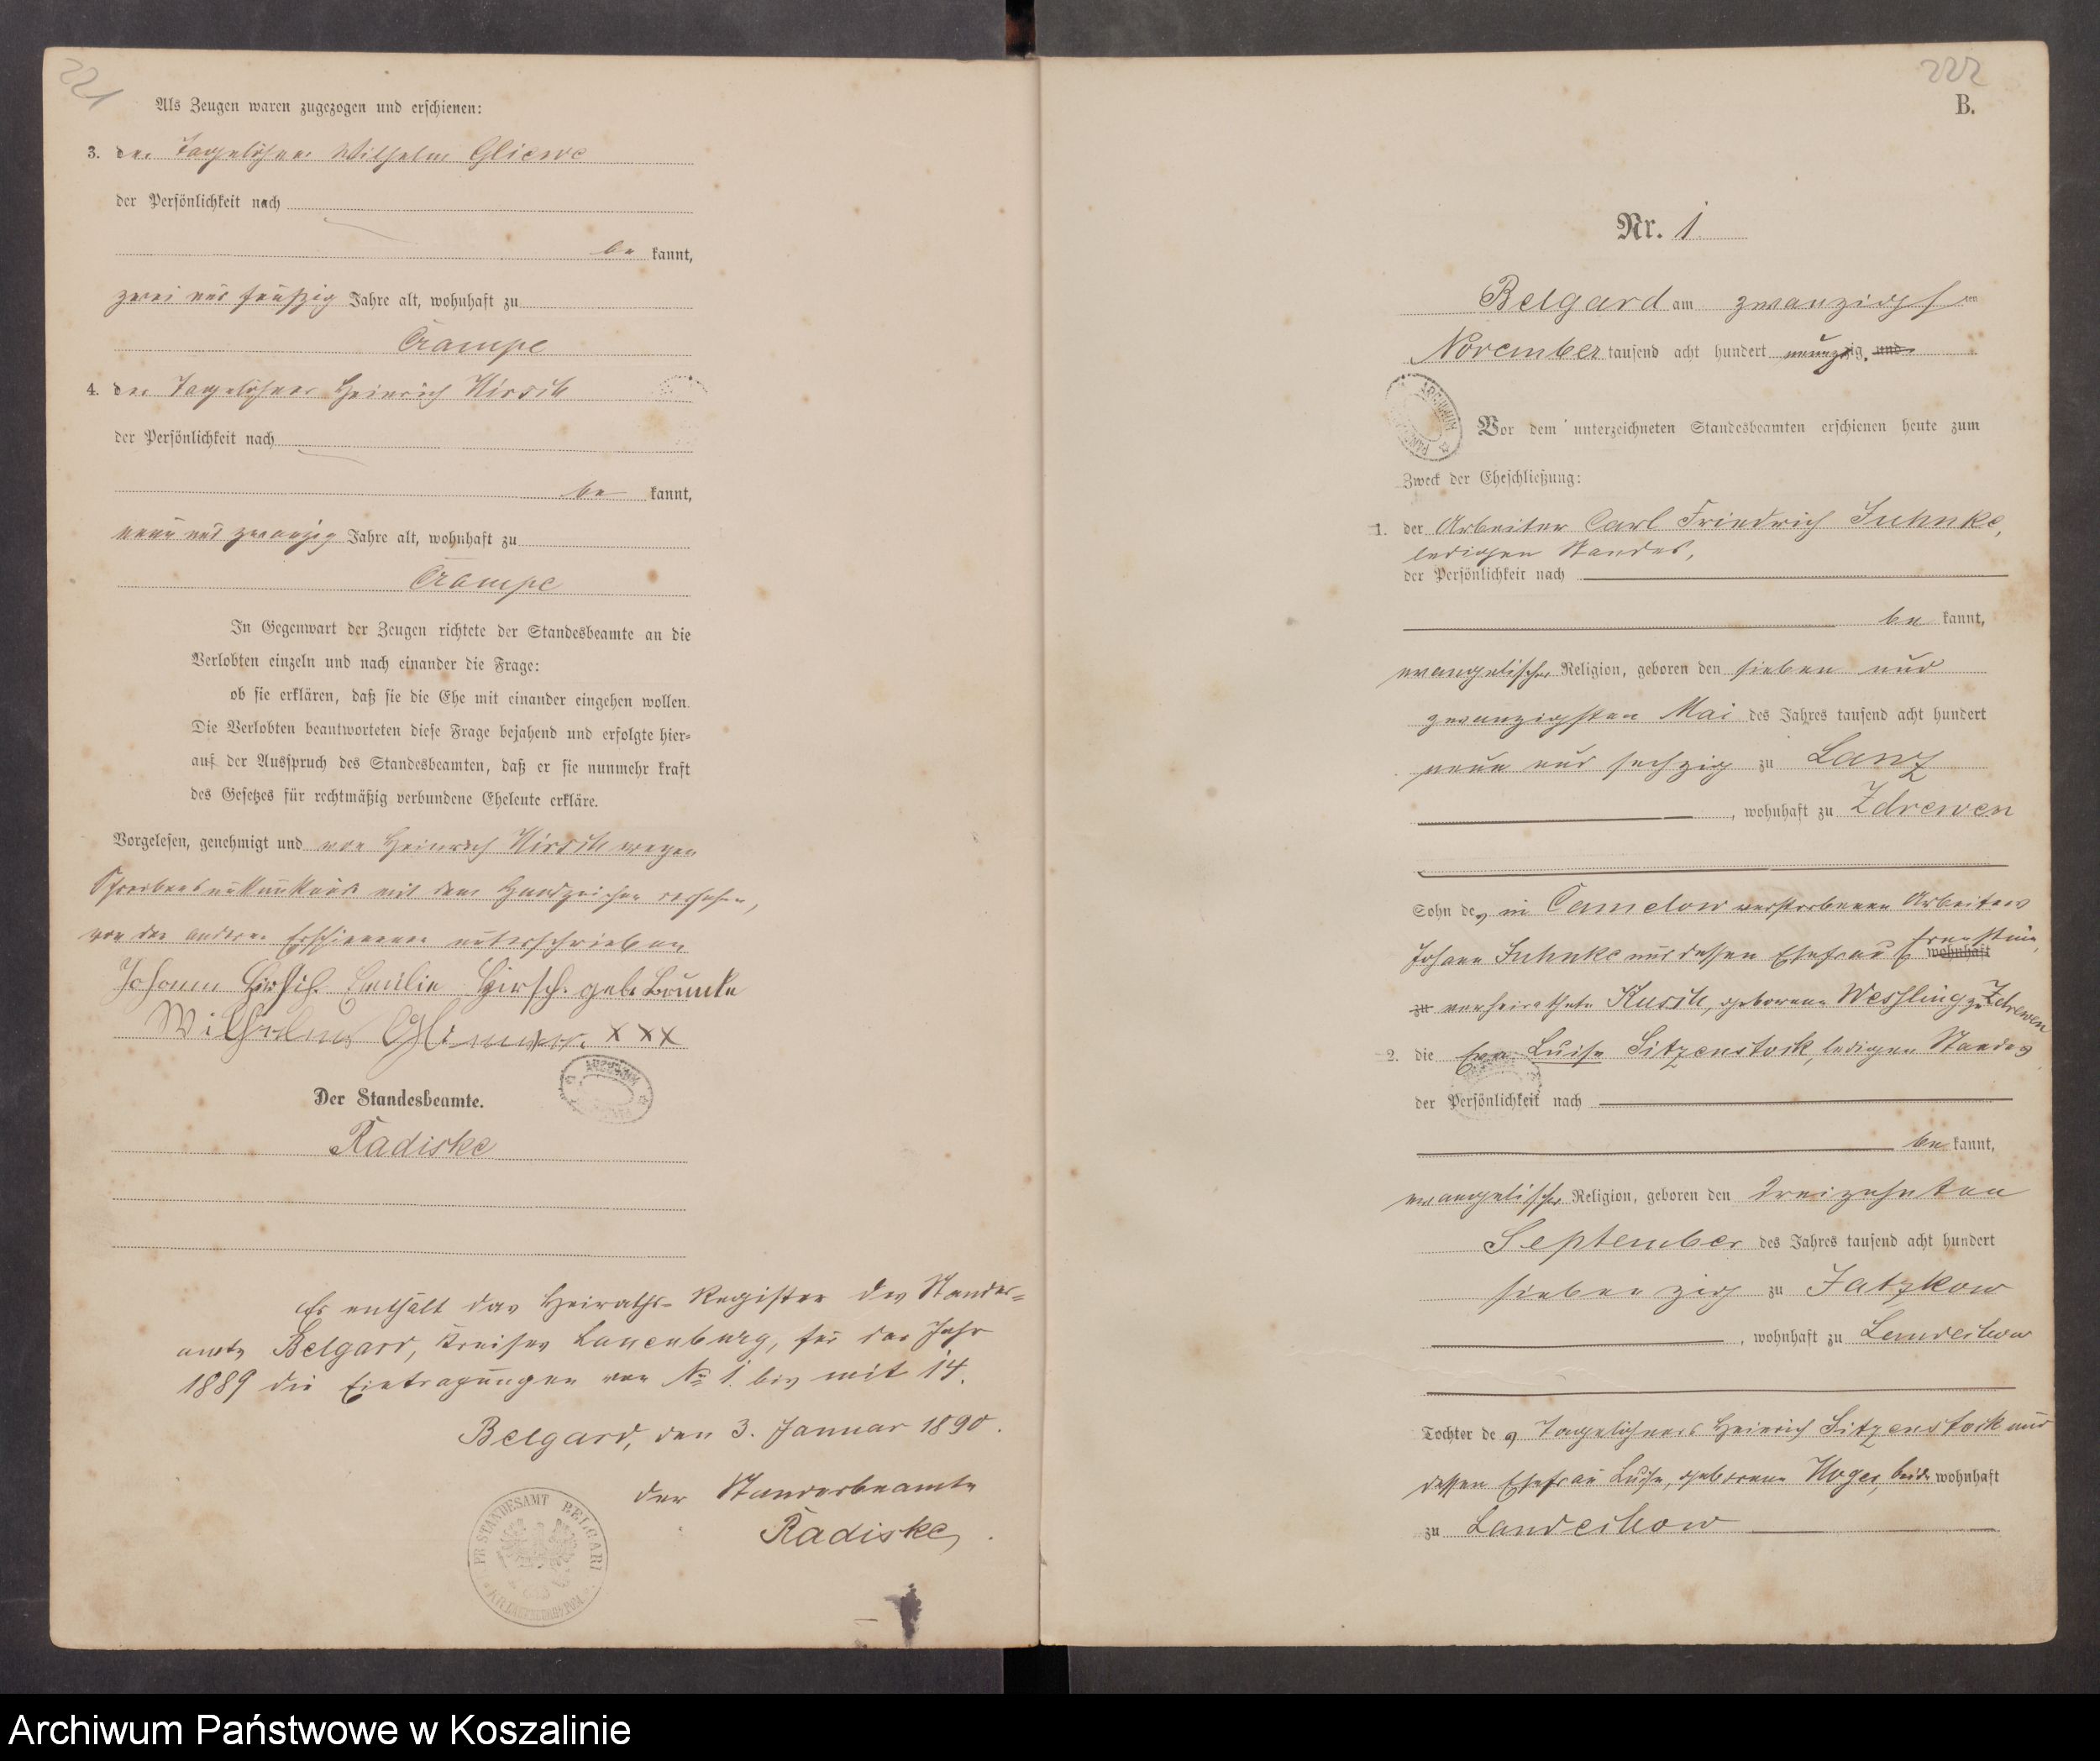 221
Als Zeugen waren zugezogen und erschienen:
3. der Tagelöhner Wilhelm Gliewe
der Persönlichkeit nach
be kannt,
zwei und fünfzig Jahre alt, wohnhaft zu
Crampe
4. der Tagelöhner Heinrich Kirsch
der Persönlichkeit nach
be kannt,
neun und zwanzig Jahre alt, wohnhaft zu
Crampe
In Gegenwart der Zeugen richtete der Standesbeamte an die
Verlobten einzeln und nach einander die Frage:
ob sie erklären, daß sie die Ehe mit einander eingehen wollen.
Die Verlobten beantworteten diese Frage bejahend und erfolgte hier-
auf der Ausspruch des Standesbeamten, daß er sie nunmehr kraft
des Gesetzes für rechtmäßig verbundene Eheleute erkläre.
Vorgelesen, genehmigt und von Heinrich Kirsch wegen
Schreibensunkunde mit dem Handzeichen versehen,
von den anderen Erschienenen unterschrieben
Johann Hirsch. Emilie Hirsch. geb. Brunke
Wilhelm XXX
Der Standesbeamte.
Radiske
Es enthält das Heiraths-Register des Standes-
amts Belgard, Kreises Lauenburg, für das Jahr
1889 die Eintragungen von No 1. bis mit 14.
Belgard, den 3. Januar 1890.
Der Standesbeamte
Radiske
PR. STANDESAMT BELGARD
222
B.
Nr. 1
Belgard am zwanzigsten
November tausend acht hundert neunzig. und
Vor dem unterzeichneten Standesbeamten erschienen heute zum
Zweck der Eheschließung:
1. der Arbeiter Carl Friedrich Juhnke,
ledigen Standes,
der Persönlichkeit nach
be kannt,
evangelischer Religion, geboren den sieben und
zwanzigsten Mai des Jahres tausend acht hundert
neun und sechzig zu Lanz
, wohnhaft zu Zdrewen
Sohn des in Camelow verstorbenen Arbeiters
Johann Juhnke und dessen Ehefrau Ernestine, wohnhaft
zu verheirathete Kusch, geborene Weshling zu Zdrewen
2. die Eva Luise Sitzenstock, ledigen Standes
der Persönlichkeit nach
be kannt,
evangelischer Religion, geboren den dreizehnten
September des Jahres tausend acht hundert
siebenzig zu Jatzkow
, wohnhaft zu Landechow
Tochter des Tagelöhners Heinrich Sitzenstock und
dessen Ehefrau Luise, geborene Koger, beide wohnhaft
zu Landechow
Archiwum Państwowe w Koszalinie